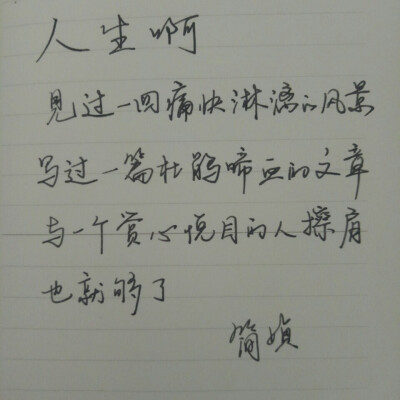 人生啊
见过一回痛快淋漓的风景
写过一篇杜鹃啼血的文章
与一个赏心悦目的人擦肩
也就够了
简媜